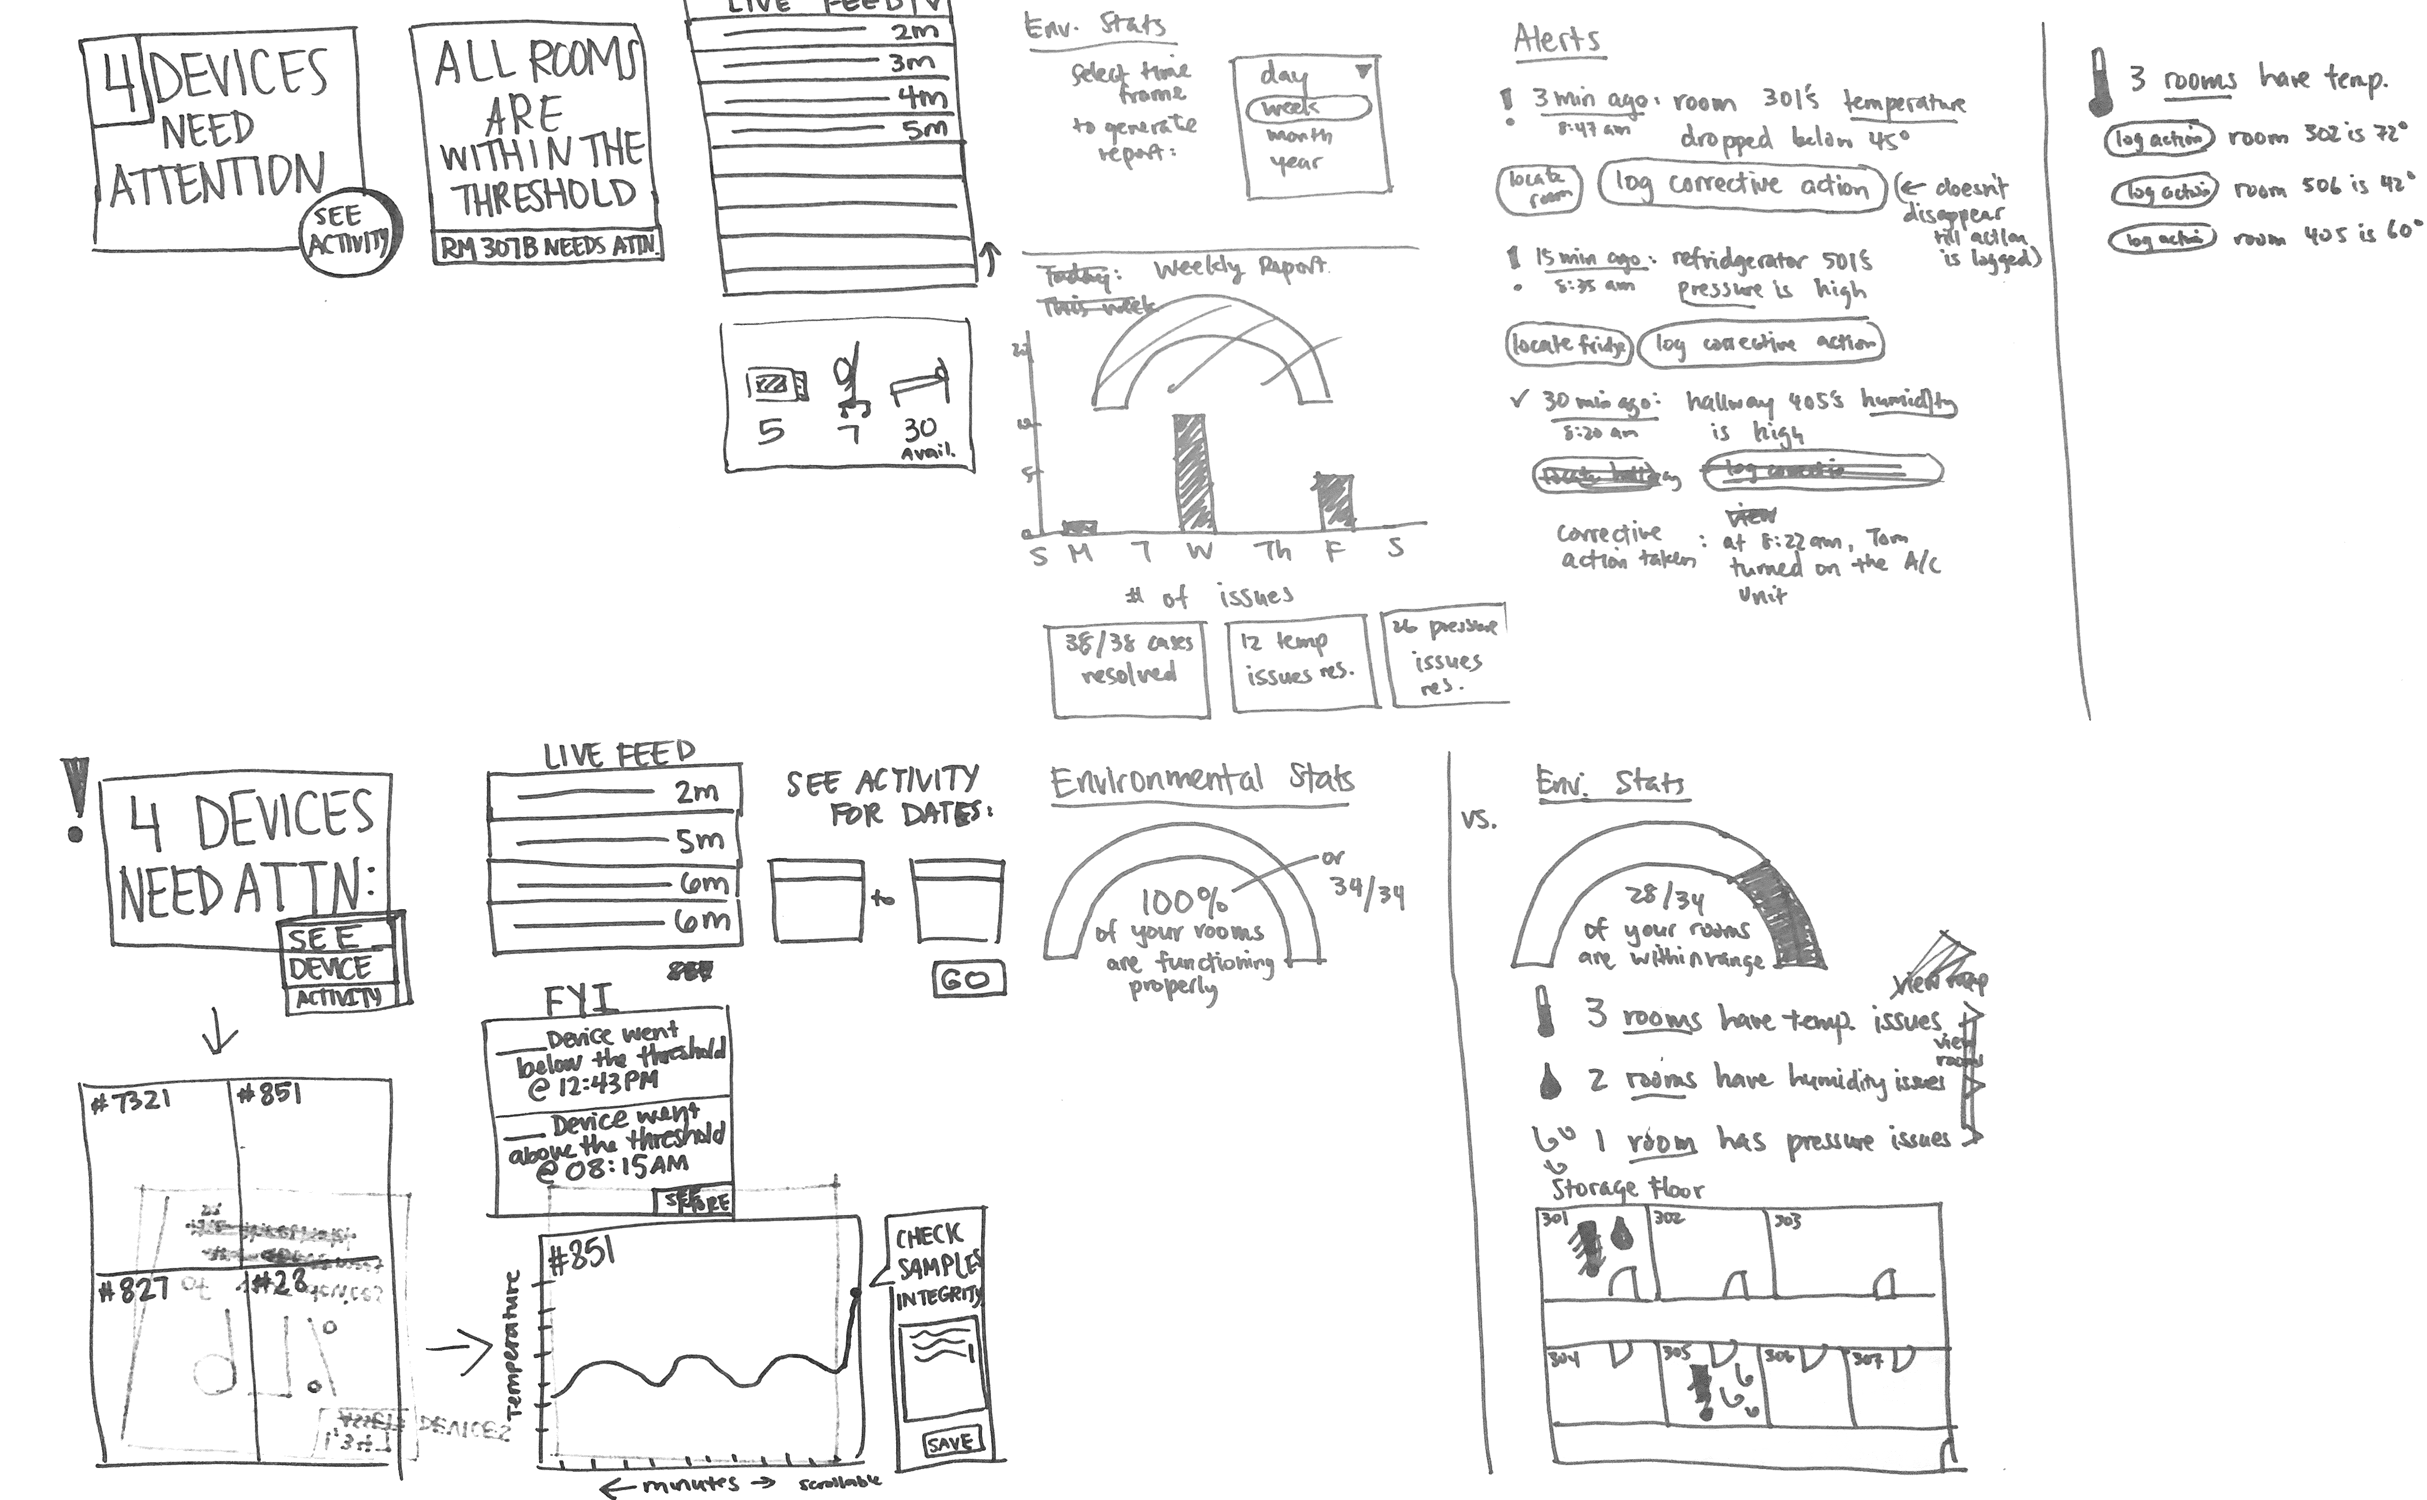 4 DEVICES
NEED
ATTENTION
SEE
ACTIVITY
ALL ROOMS
ARE
WITHIN THE
THRESHOLD
RM 307B NEEDS ATTN.
LIVE FEED
2m
3m
4m
5m
5
7
30
Avail.
Env. Stats
select time
frame
to generate
report:
day
week
month
year
Today: Weekly Report
This week
5
0
S M T W Th F S
# of issues
38/38 cases
resolved
12 temp
issues res.
26 pressure
issues
res.
Alerts
! 3 min ago: room 301's temperature
8:47 am dropped below 45°
locate
room
log corrective action
(← doesn't
disappear
till action
is logged)
! 15 min ago: refridgerator 501's
8:35 am pressure is high
locate fridge
log corrective action
✓ 30 min ago: hallway 405's humidity
8:20 am is high
log correctie
view
corrective
action taken
: at 8:22 am, Tom
turned on the A/C
unit
3 rooms have temp.
log action room 302 is 72°
log action room 506 is 42°
log action room 405 is 60°
! 4 DEVICES
NEED ATTN:
SEE
DEVICE
ACTIVITY
#7321
#851
#827
#28
LIVE FEED
2m
5m
6m
6m
SEE
FYI
Device went
below the threshold
@ 12:43PM
Device went
above the threshold
@ 08:15AM
SEE MORE
SEE ACTIVITY
FOR DATES:
to
GO
#851
Temperature
← minutes → scrollable
CHECK
SAMPLES
INTEGRITY
SAVE
Environmental Stats
100%
of your rooms
are functioning
properly
or
34/34
vs.
Env. Stats
28/34
of your rooms
are within range
view map
3 rooms have temp. issues
2 rooms have humidity issues
1 room has pressure issues
view
rooms
Storage Floor
301
302
303
304
305
306
307